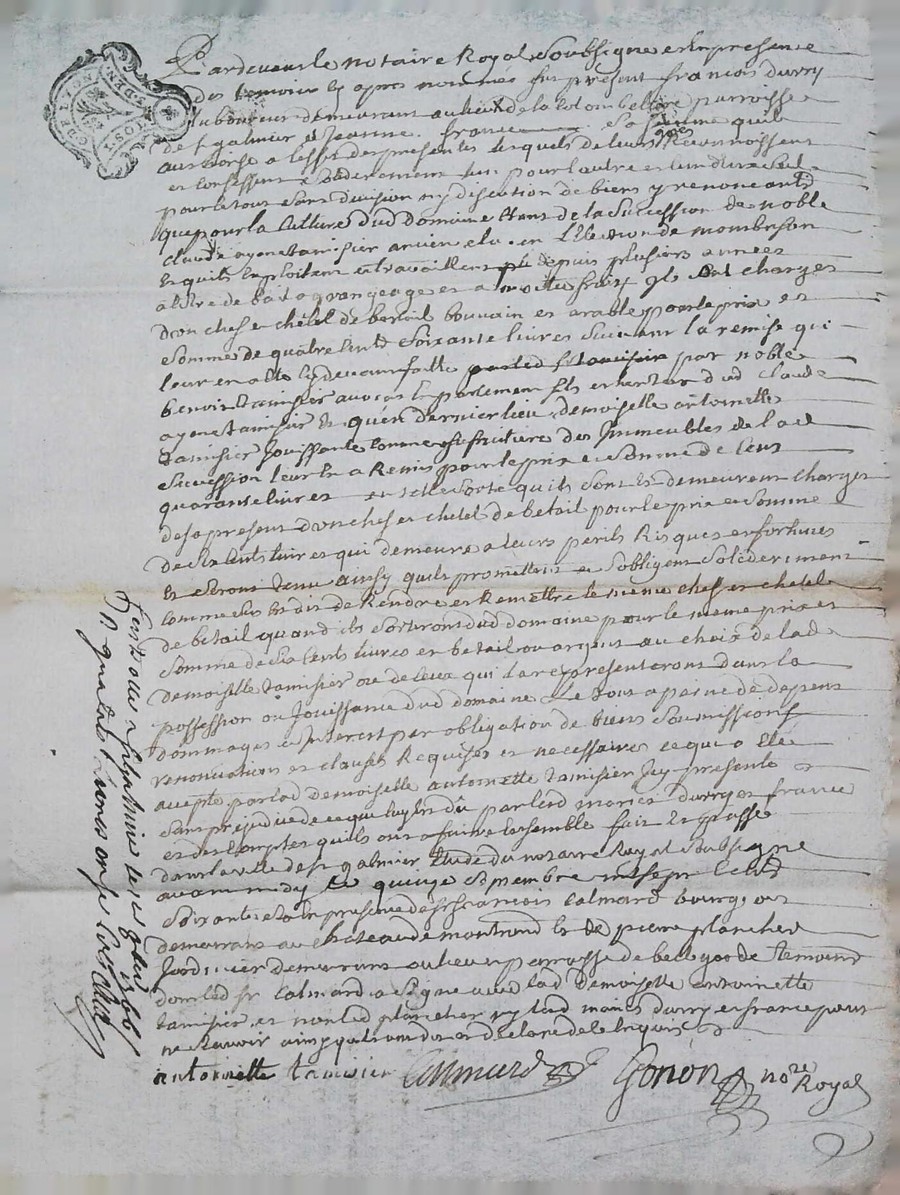 Pardevant le notaire Royal Soubsigné et en presence
des temoins cy apres nommes fut présent françois durry
laboureur demeurant au lieux de la Colombellere parroisse
de st galmier et Jeanne france sa femme quil
authorise a leffet des presentes lesquels de leurs Reconnoissent
et Confessent solidérement lun pour lautre et lun deux seul
pour le tout sans division ny discution de biens y renoncants
que pour la Culture dud Domaine étans de la Succession de noble
Claude ayme tamisier ancien élu en L'élection de montbrison
et quils Exploitent et travaillent depuis plusieurs années
a titre de grangeage et a moitié fruix ils sont chargés
d'un chef et chétel de betail bouvain et arable pour le prix et
Somme de quatre Cents soixante livres suivant la remise qui
leur en a été cy devant faitte par noble
benoit tamisier avocat en parlement fils et heritier dud Claude
ayme tamisier et quen dernier lieu demoiselle antoinette
tamisier Jouissante comme usufruitiere des Immeubles de lad
Succession leur en a Remis pour le prix et Somme de Cent
quarante livres en telle sorte quils sont et demeurent chargés
des a present d'un chef et chétel de betail pour le prix et Somme
de six Cents livres qui demeure a leurs périls Risques et fortunes
et seront tenu ainsy quils promettent et sobligent Solidérement
comme dessus de Rendre et Remettre le meme chef et chétel
de betail quand ils sortiront dud domaine pour le meme prix et
Somme de six Cents livres en betail ou argent au choix de lad
demoiselle tamisier ou de Ceux qui la representeront dans la
possession ou Jouissance dud domaine Le tout a peine de dépens
dommages et Interest par obligation de biens Soumissions
renonciations et clauses Requises et necessaires ce qui a été
accepté par lad Demoiselle antoinette tamisier Icy presente
sans prejudice de ce que luy est dû par lesd mariés durry et france
et des Comptes quils ont a faire Ensemble fait et passé
dans la ville de st galmier Etude du notaire Royal Soubsigné
avant midy le quinze septembre mil sept Cents
soixante en presence de sr françois Calmard bourgeois
demeurant au chateau de montrond et de pierre plancher
Jardinier demeurant au lieu et parroisse de bellegarde temoins
dont led sr Calmard a signé avec lad Demoiselle antoinette
tamisier et non led plancher ny lesd mariés durry et france pour
ne Scavoir ainsy quils ont dit et déclaré de ce Enquis
antoinette tamisier Calmard Gonon nore Royal